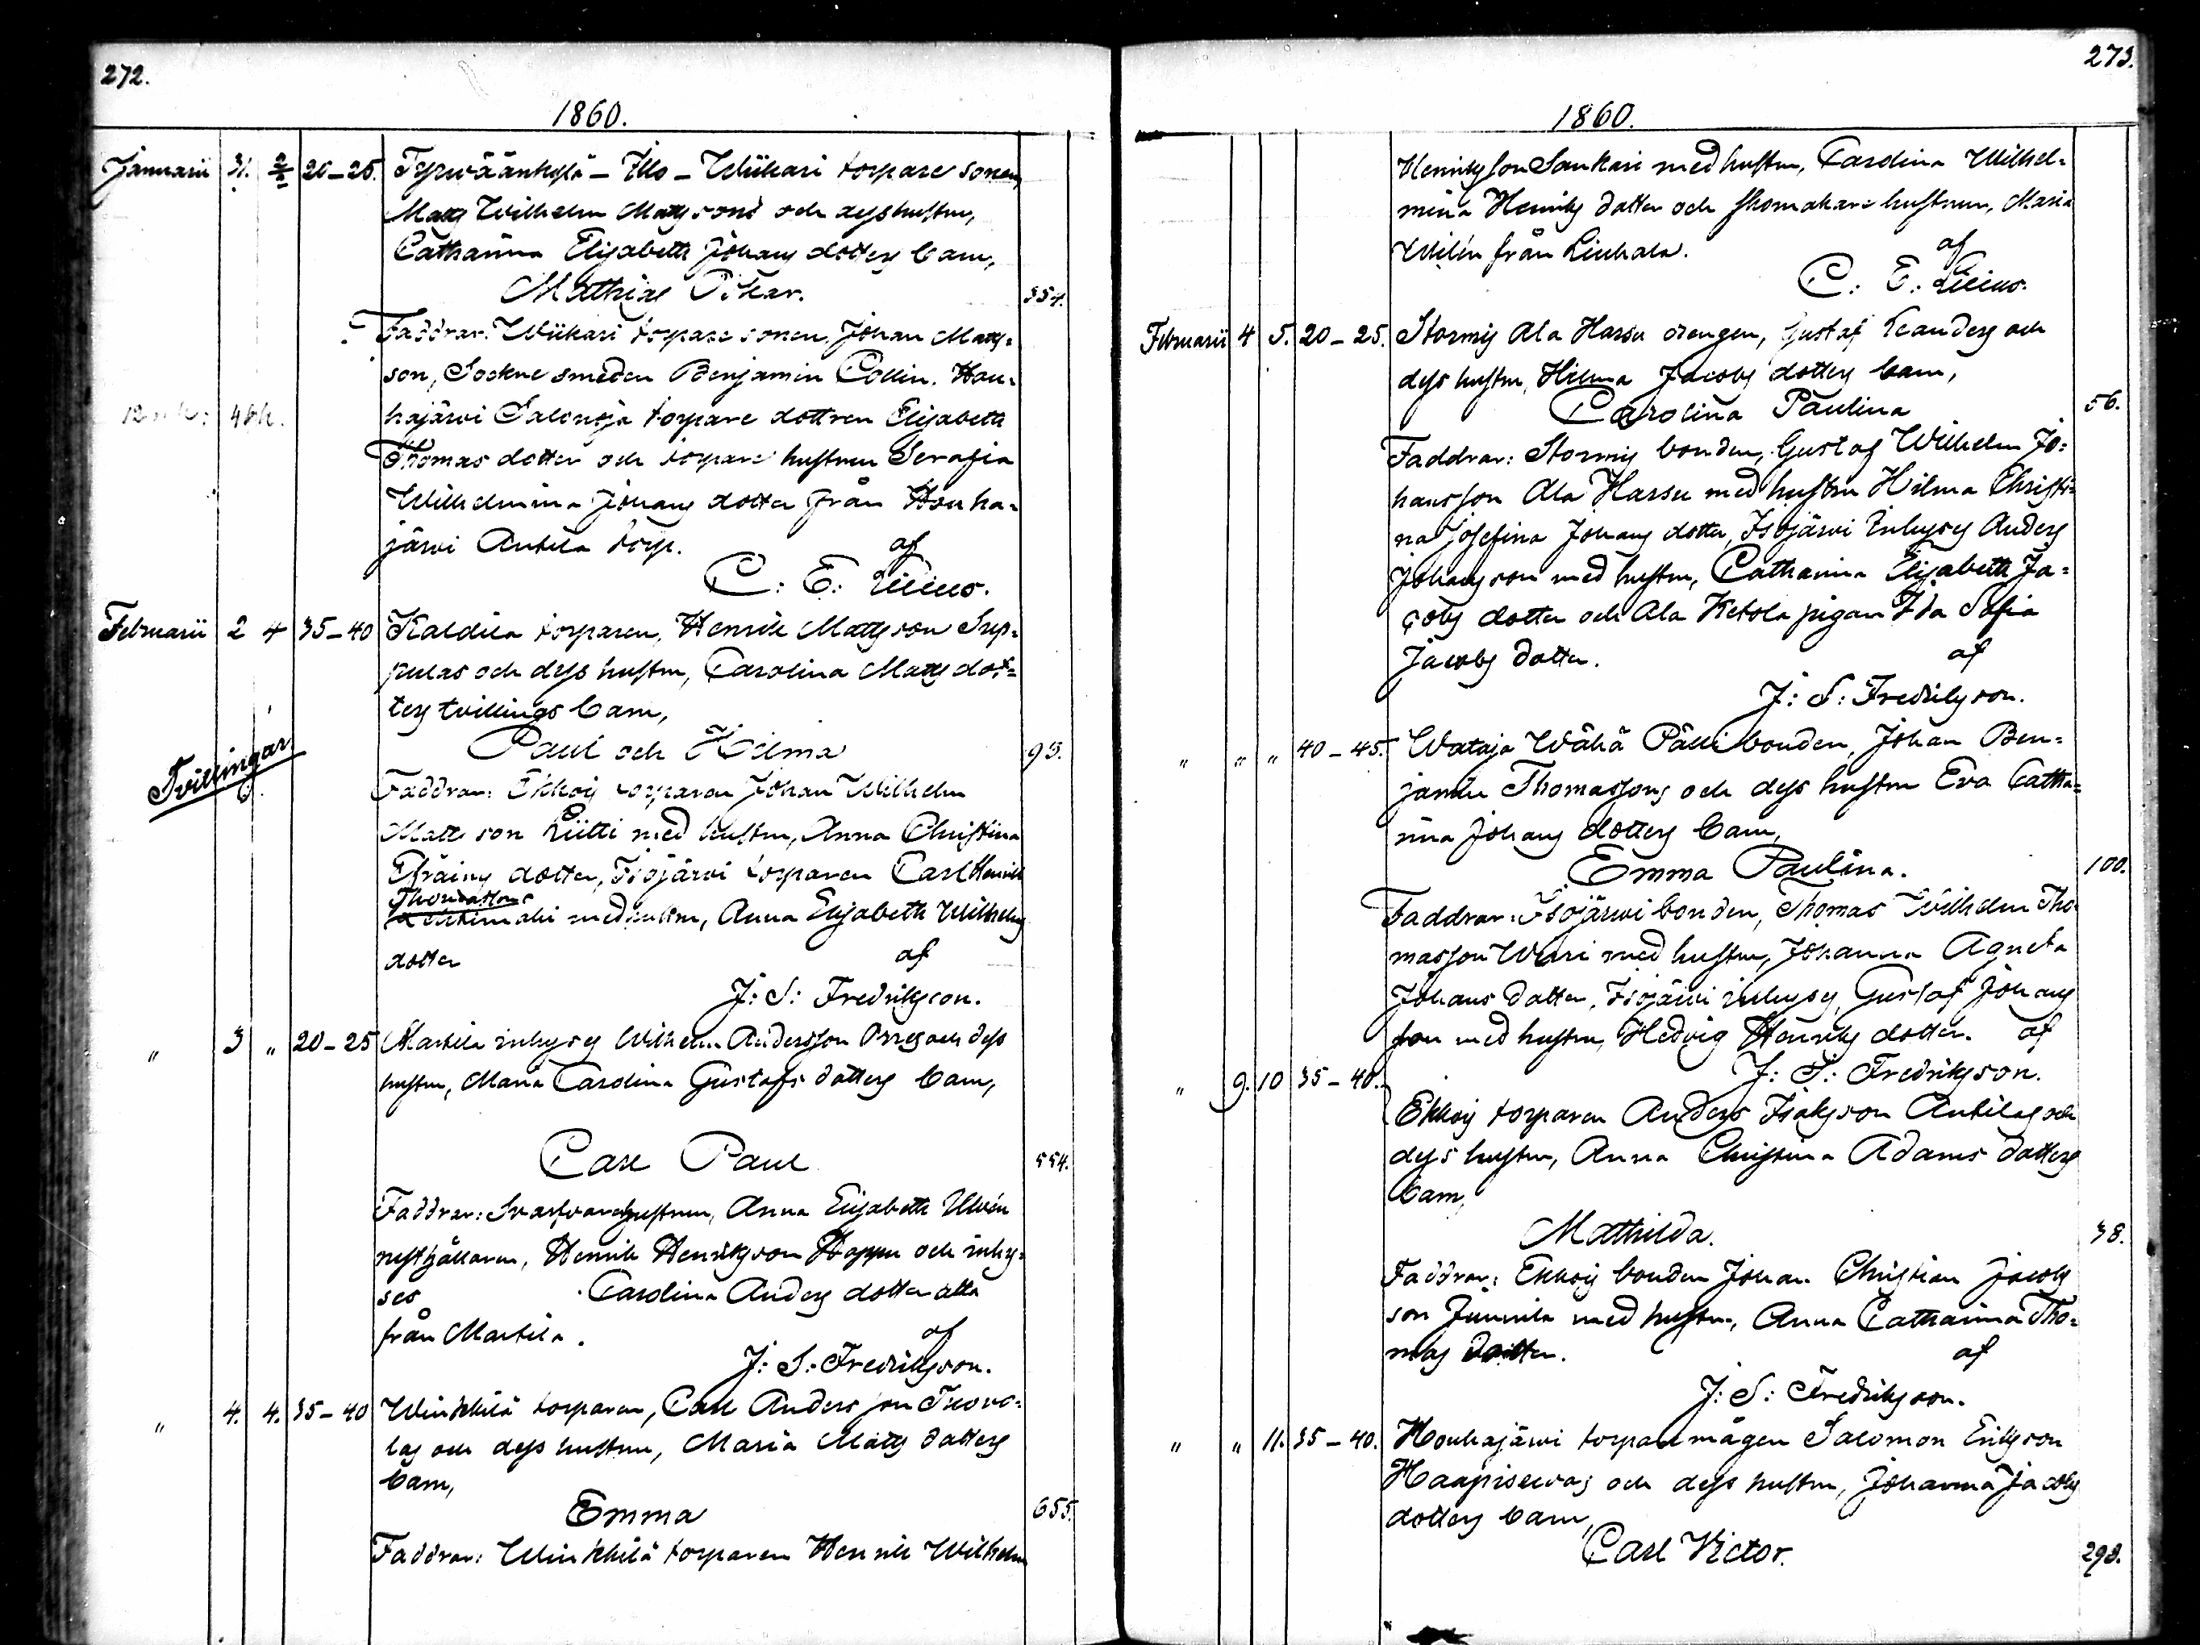 272.
1860.
Januarii 31. 2/2 20–25. Tyrwäänkylä – Illo – Wiikari torpare sonen,
Matts Wilhelm Mattssons och dess hustru,
Catharina Elisabeth Johans dotters barn,
Mathias Oskar. 554.
Faddrar: Wiikari torpare sonen, Johan Matts-
son, Sockne smeden Benjamin Collin. Hou-
hajärvi Salonoja torpare dottren Elisabeth
Thomas dotter och torpare hustrun Serafia
Wilhelmina Johans dotter från Houha-
järvi Antila torp. af
C: E: Lilius.
Februarii 2 4 35–40 Kaldila torparen, Henrik Mattsson Sep-
pulas och dess hustru, Carolina Matts dot-
ters tvillings barn,
Tvillingar
Paul och Hilma 93.
Faddrar: Ekkois torparen Johan Wilhelm
Matts son Liitti med hustru, Anna Christina
Efraims dotter, Isojärvi torparen Carl Henrik
Thomasson
med hustru, Anna Elisabeth Wilhelms
dotter af
J: S: Fredriksson.
" 3 " 20–25 Martila inhyses Wilhelm Andersson Orres och dess
hustru, Maria Carolina Gustafs dotters barn,
Carl Paul 554.
Faddrar: Svarfvare hustrun, Anna Elisabeth Ulvén
rusthållaren, Henrik Henriksson Hoppu och inhy-
ses Carolina Anders dotter alla
från Martila. af
J: S: Fredriksson.
" 4. 4. 35–40 Winkkilä torparen, Carl Andersson Tuovo-
las och dess hustru, Maria Matts dotters
barn,
Emma 655.
Faddrar: Winkkilä torparen Henrik Wilhelm
273.
1860.
Henriksson Sankari med hustru, Carolina Wilhel-
mina Henriks dotter och skomakare hustrun, Maria
Wilén från Liuhala. af
C: E: Lilius.
Februarii 4 5. 20–25. Stormis Ala Hassu drengen, Gustaf Leanders och
dess hustru, Hilma Jacobs dotters barn,
Carolina Paulina 56.
Faddrar: Stormis bonden, Gustaf Wilhelm Jo-
hansson Ala Hassu med hustru Hilma Christi-
na Josefina Johans dotter, Isojärvi Inhyses Anders
Johansson med hustru, Catharina Elisabeth Ja-
cobs dotter och Ala Ketola pigan Ida Sofia
Jacobs dotter. af
J: S: Fredriksson.
" " " 40–45. Wataja Wähä Pälli bonden, Johan Ben-
jamin Thomassons och dess hustru Eva Catha-
rina Johans dotters barn,
Emma Paulina. 100.
Faddrar: Isojärvi bonden, Thomas Wilhelm Tho-
masson Wari med hustru, Johanna Agneta
Johans dotter, Isojärvi inhyses, Gustaf Johans
son med hustru, Hedvig Henriks dotter. af
J: S: Fredriksson.
" 9. 10 35–40. Ekkois torparen Anders Isaksson Antilas och
dess hustru, Anna Christina Adams dotters
barn,
Mathilda. 38.
Faddrar: Ekkois bonden Johan Christian Jacobs
son Junnila med hustru, Anna Catharina Tho-
mas dotter. af
J: S: Fredriksson.
" " 11. 35–40. Houhajärvi torpare mågen Salomon Eriksson
Haapisevas och dess hustru, Johanna Jacobs
dotters barn,
Carl Victor. 293.